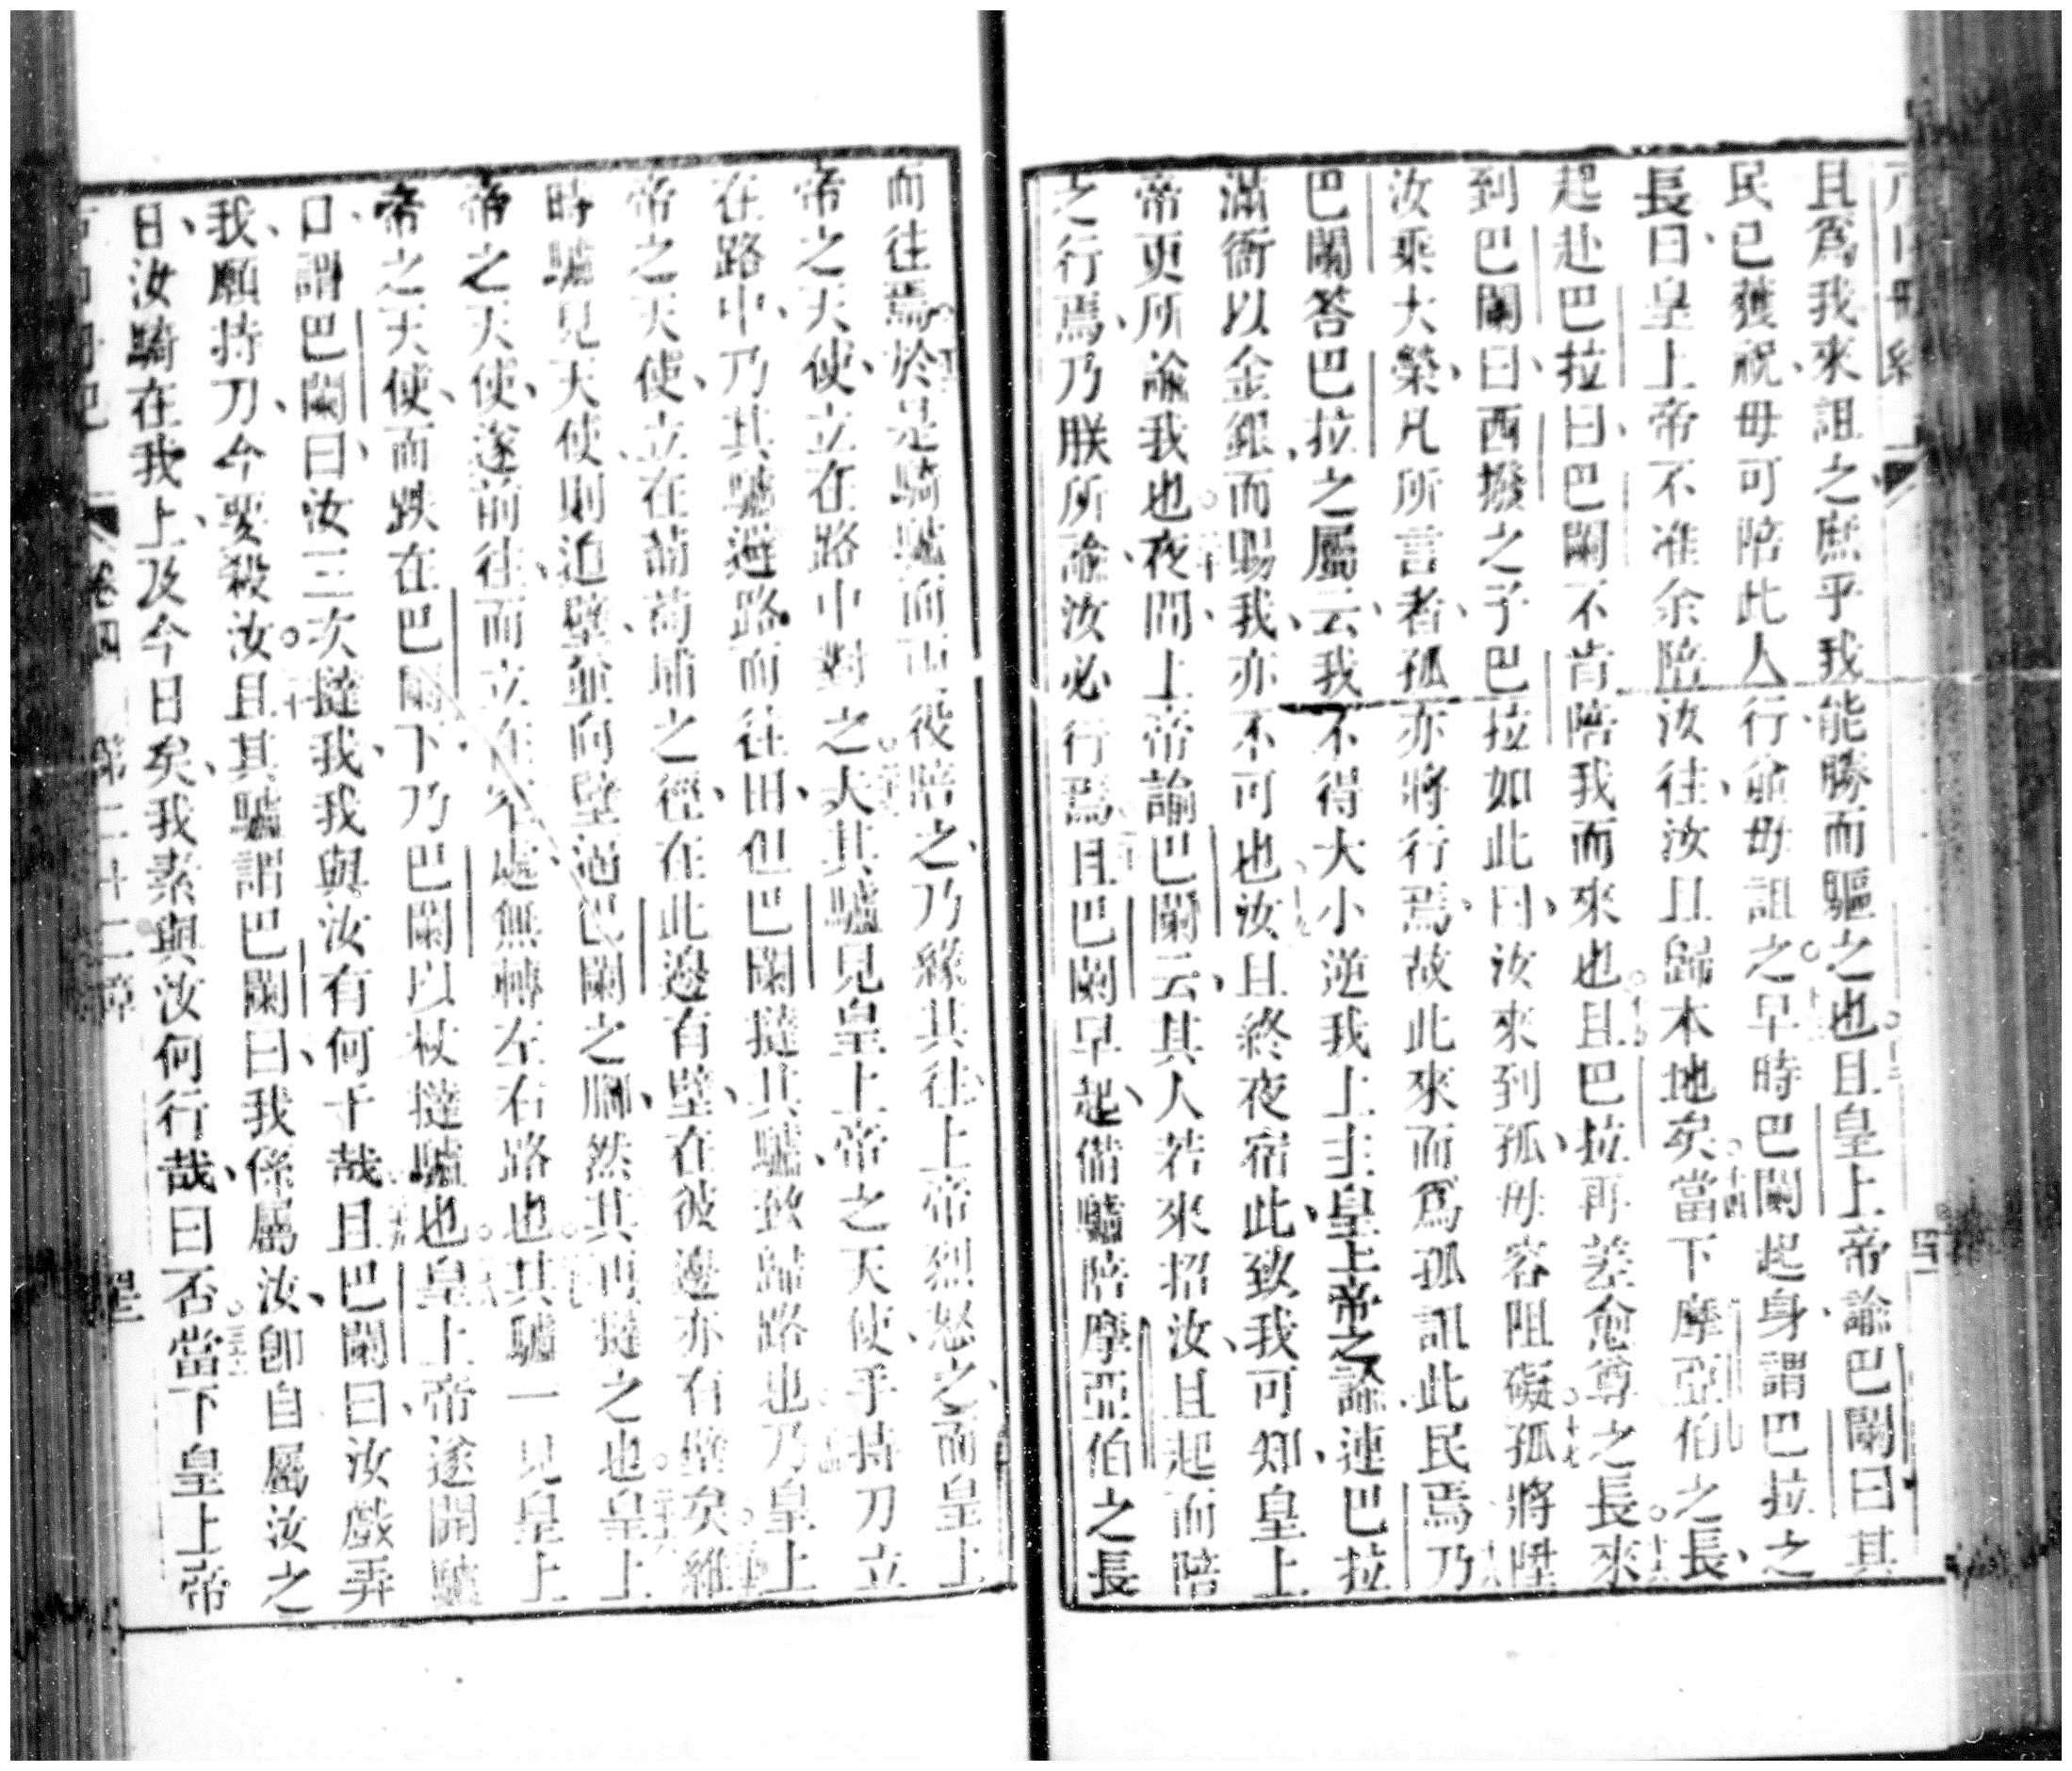 且爲我來詛之庶乎我能勝而驅之也。十二且皇上帝諭巴闌曰其
民已獲祝、毋可陪此人行、並毋詛之。十三早時巴闌起身、謂巴拉之
長曰、皇上帝不准余陪汝往、汝且歸本地矣。十四當下摩亞伯之長、
起赴巴拉曰、巴闌不肯陪我而來也。十五且巴拉再差愈尊之長來。十六
到巴闌曰、西撥之子巴拉如此曰、汝來到孤、毋容阻礙。十七孤將陞
汝乘大榮、凡所言者、孤亦將行焉、故此來而爲孤詛此民焉。十八乃
巴闌答巴拉之屬云、我不得大小逆我上主皇上帝之諭、連巴拉
滿衙以金銀而賜我、亦不可也。十九汝且終夜宿此、致我可知、皇上
帝更所諭我也。二十夜間、上帝諭巴闌云、其人若來招汝、汝且起而陪
之行焉、乃朕所諭、汝必行焉。且巴闌早起、備驢陪摩亞伯之長
而往焉。於是騎驢而兩役陪之、乃緣其往、上帝烈怒之、而皇上
帝之天使、立在路中對之。大其驢見皇上帝之天使、手持刀立
在路中、乃其驢避路而往田、但巴闌撻其驢、致歸路也。乃皇上
帝之天使、立在葡萄埔之徑、在此邊有壁、在彼邊亦有壁矣。維
時驢見天使、則迫壁、並向壁逼巴闌之脚、然其再撻之也。皇上
帝之天使、遂前往、而立在窄處、無轉左右路也。其驢一見皇上
帝之天使、而跌在巴闌下、乃巴闌以杖撻驢也。皇上帝遂開驢
口、謂巴闌曰、汝三次撻我、我與汝有何干哉。二十九且巴闌曰、汝戲弄
我、願持刀、今要殺汝。三十且其驢謂巴闌曰、我係屬汝、卽自屬汝之
日、汝騎在我上、及今日矣、我素與汝何行哉、曰否。三十一當下皇上帝
卷四 第二十二章